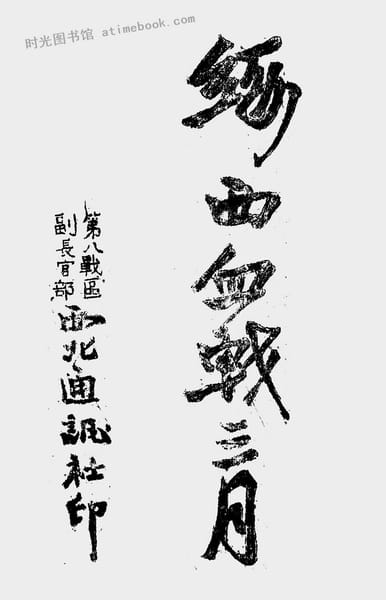 时光图书馆 atimebook.com
綏西血戰三月
第八戰區
副長官部
西北通訊社印